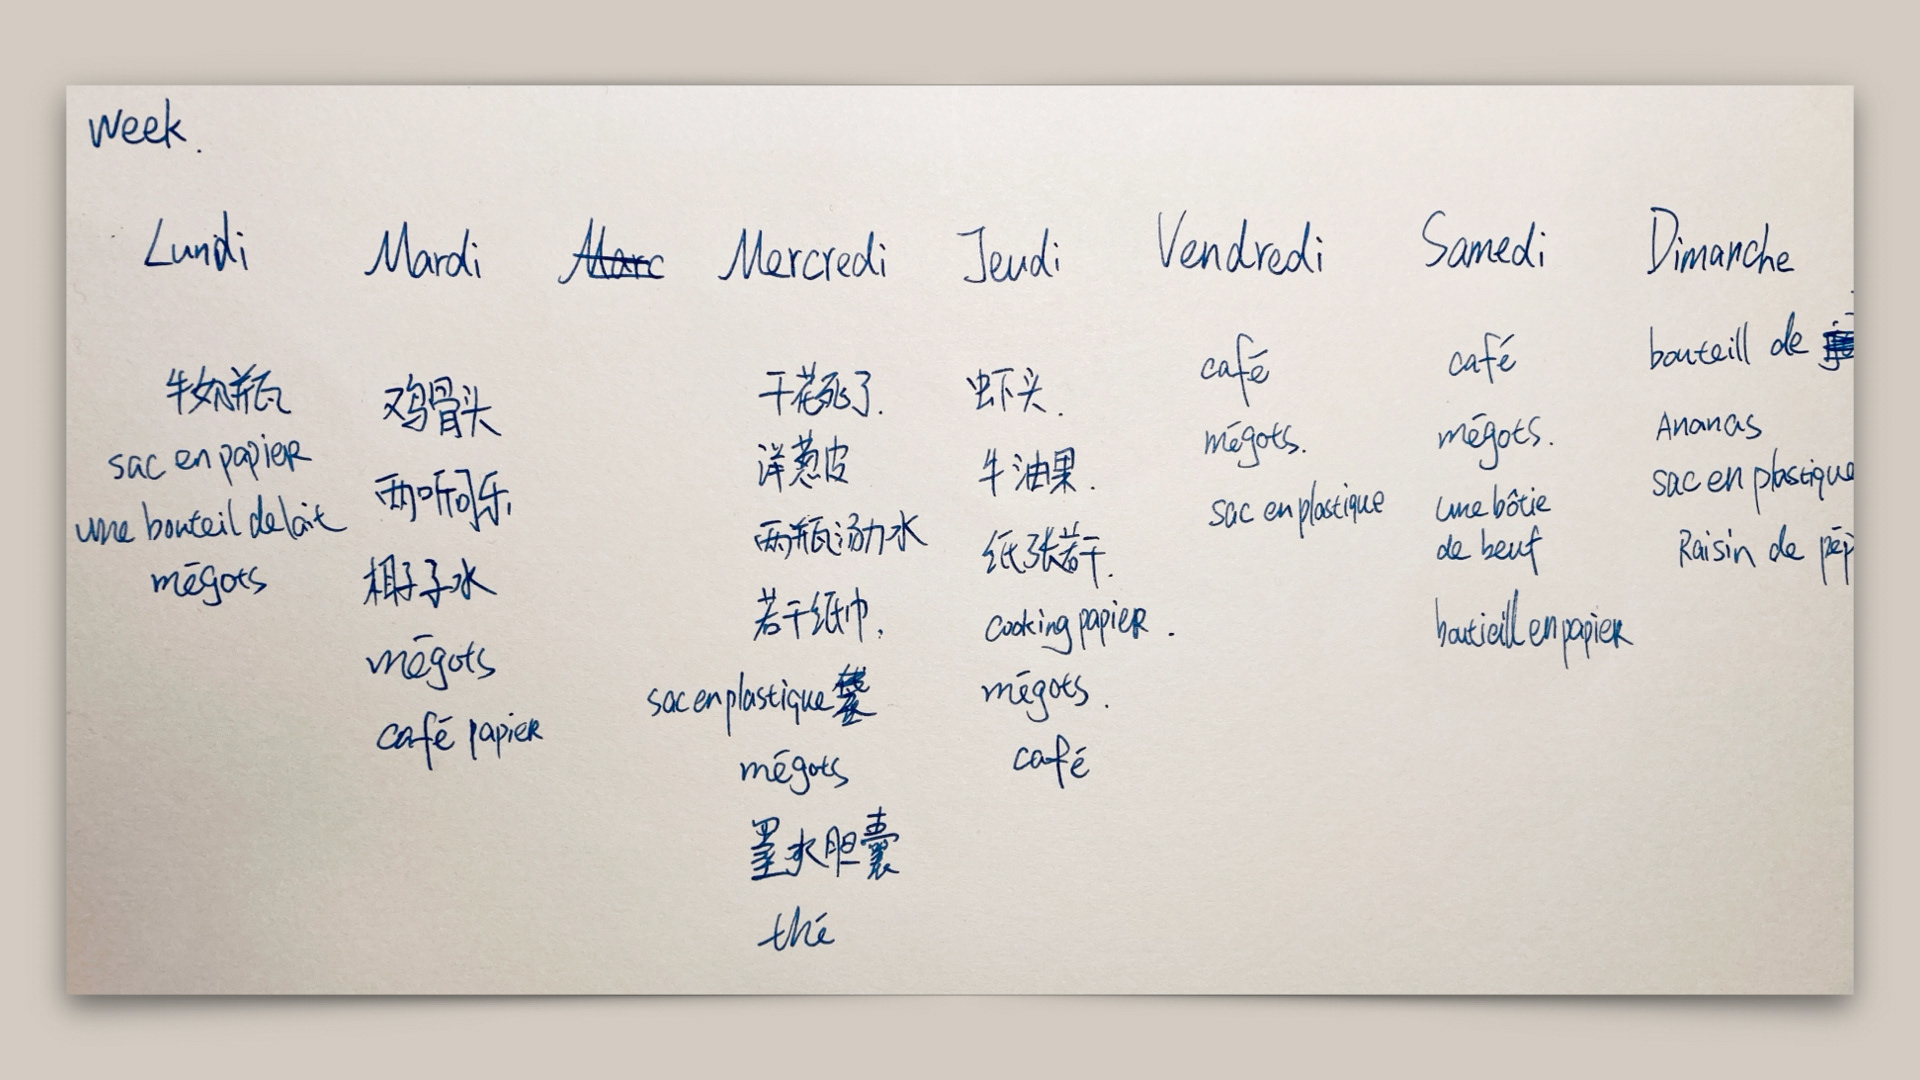 Week.
Lundi Mardi Mercredi Jeudi Vendredi Samedi Dimanche
牛奶瓶
sac en papier
une bouteil de lait
mégots
鸡骨头
两听可乐
椰子水
mégots
café papier
干花死了.
洋葱皮
两瓶汤力水
若干纸巾.
sac en plastique
mégots
墨水胆囊
thé
虾头.
牛油果.
纸张若干.
cooking papier.
mégots.
café
café
mégots.
sac en plastique
café
mégots.
une bôtie
de beuf
boutieill en papier
bouteill de
Ananas
sac en plastique
Raisin de